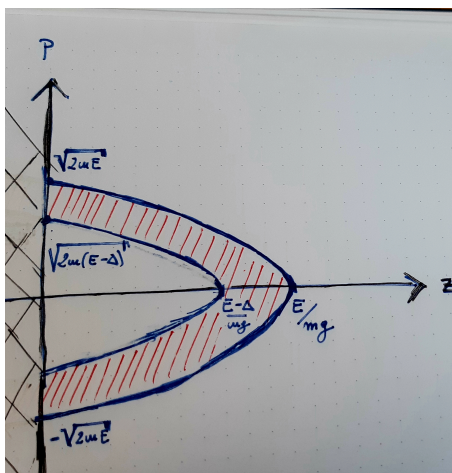 P
√2mE
√2m(E-Δ)
z
E-Δ
mg
E/mg
-√2mE